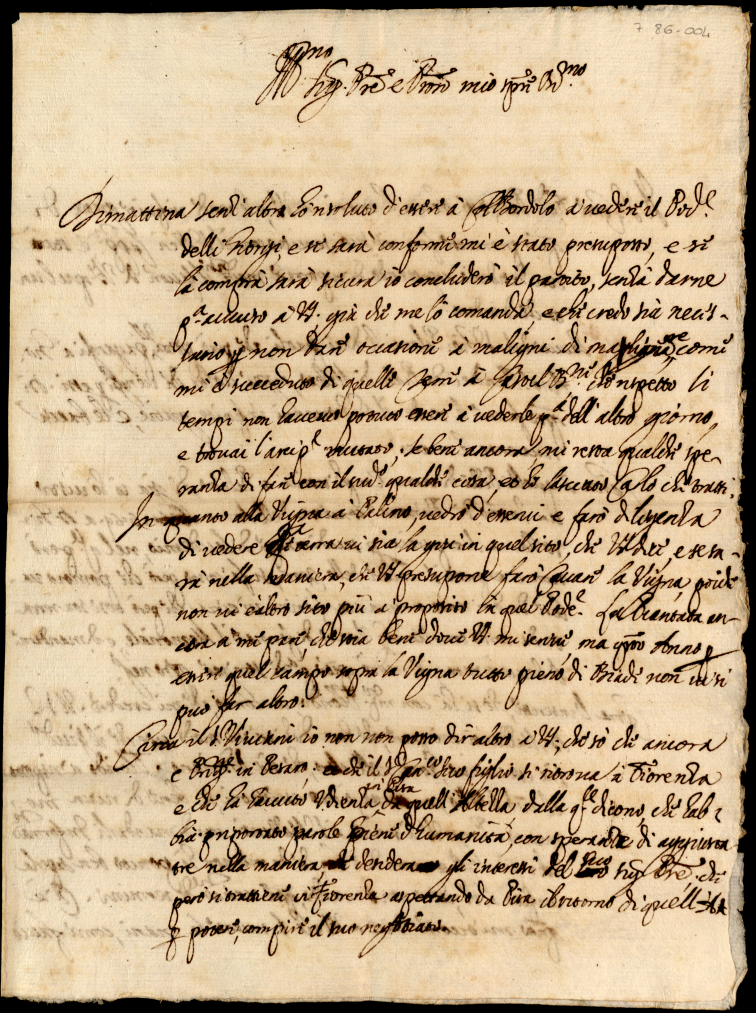 7 86-004
Sig.r Pre e Pron mio
Dimattina senz'altro hò risoluto d'essere à Colbordolo à vedere il Pod.e
delli Horsi, e se sarà conforme mi è stato presuposto, e se
la compra sarà sicura io concluderò il partito, senza darne
p.a avviso à VS. già che me lo comanda, e che credo sia neces-
sario non dare occasione à maligni di malignare, come
mi è succeduto di quelli Terre à che rispetto li
tempi non havevo potuto essere à vederle p.a dell'altro giorno,
e trovai l'arcip.e mutato, se bene ancora mi resta qualche spe-
ranza di fare con il sud.o qualche cosa, et hò lasciato Carlo che tratti.
In quanto alla Vigna à Palino, vedrò d'esservi e farò diligenza
di vedere che terra vi sia la giù in quel sito, che VS dice, e se sa-
rà nella maniera, che VS presupone farò cavare la Vigna, poiche
non vi è altro sito più à proposito in quel Pode.e La Piantata an-
cora à mè pare, che stia bene dove VS mi scrive, ma q.sto Anno p
essere quel campo sopra la Vigna tutto pieno di Biade non vi si
può far altro.
Circa il Viviani io non non posso dir altro a VS, che sò che ancora
è in Pesaro: et che il suo figlio si ritrova à Fiorenza
e che hà havuto Udienza in Pisa da quell'Altezza dalla q.le dicono, che hab-
bia riportato parole piene d'humanità, con speranza di aggiusta-
re nella maniera, desidera gli interessi del suo Sig.r Pre, che
però si trattiene in Fiorenza aspettando da Pisa il ritorno di quell'
p potere compire il suo negotiato.